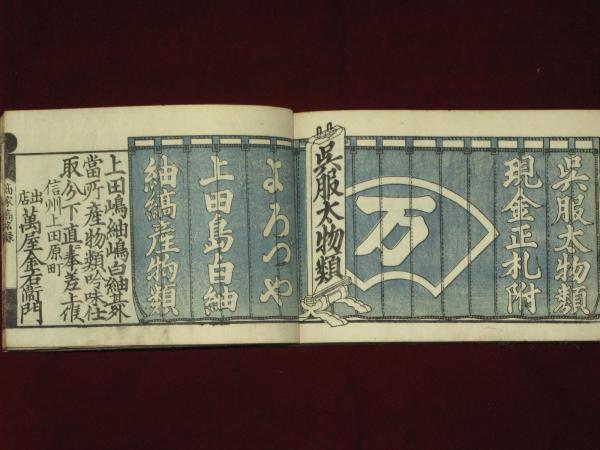 呉服太物類
現金正札附
万
呉服太物類
よろづや
上田島白紬
紬縞産物類
上田嶋紬嶋白紬其外
当所産物類吟味仕
取分下直奉差上候
信州上田原町
出店
萬屋金右衛門